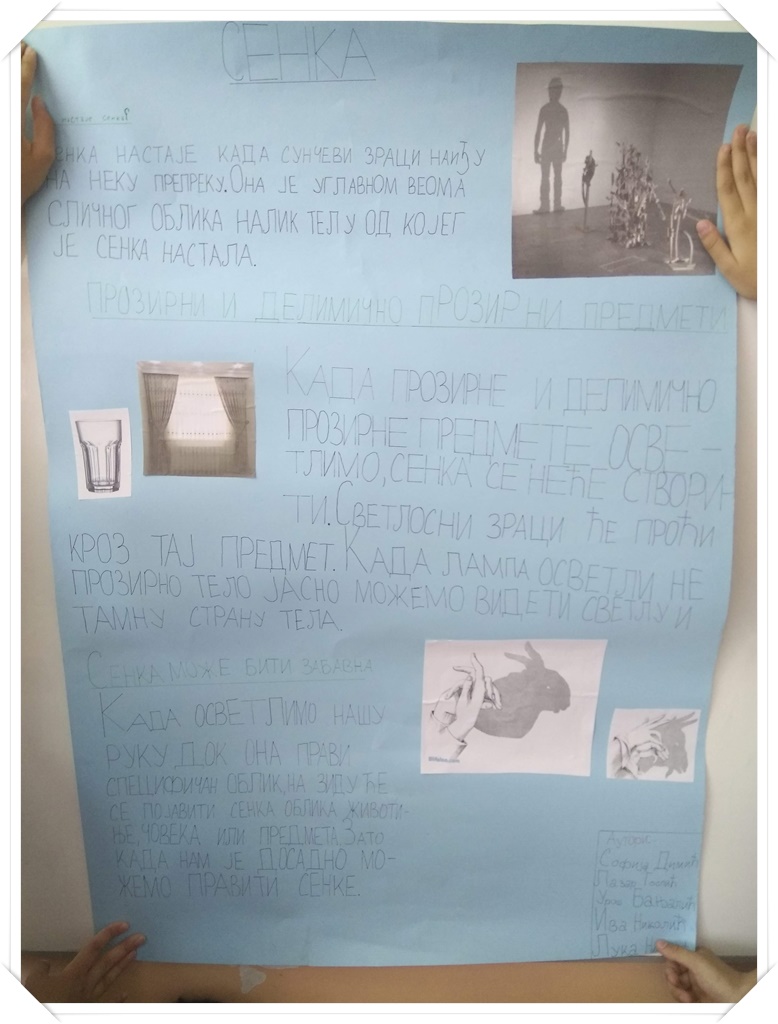 СЕНКА
настаје сенка?
СЕНКА НАСТАЈЕ КАДА СУНЧЕВИ ЗРАЦИ НАИЂУ
НА НЕКУ ПРЕПРЕКУ. ОНА ЈЕ УГЛАВНОМ ВЕОМА
СЛИЧНОГ ОБЛИКА НАЛИК ТЕЛУ ОД КОЈЕГ
ЈЕ СЕНКА НАСТАЛА.
ПРОЗИРНИ И ДЕЛИМИЧНО ПРОЗИРНИ ПРЕДМЕТИ
КАДА ПРОЗИРНЕ И ДЕЛИМИЧНО
ПРОЗИРНЕ ПРЕДМЕТЕ ОСВЕ-
ТЛИМО, СЕНКА СЕ НЕЋЕ СТВОРИ-
ТИ. СВЕТЛОСНИ ЗРАЦИ ЋЕ ПРОЋИ
КРОЗ ТАЈ ПРЕДМЕТ. КАДА ЛАМПА ОСВЕТЛИ НЕ
ПРОЗИРНО ТЕЛО ЈАСНО МОЖЕМО ВИДЕТИ СВЕТЛУ И
ТАМНУ СТРАНУ ТЕЛА.
СЕНКА МОЖЕ БИТИ ЗАБАВНА
КАДА ОСВЕТЛИМО НАШУ
РУКУ, ДОК ОНА ПРАВИ
СПЕЦИФИЧАН ОБЛИК, НА ЗИДУ ЋЕ
СЕ ПОЈАВИТИ СЕНКА ОБЛИКА ЖИВОТИ-
ЊЕ, ЧОВЕКА ИЛИ ПРЕДМЕТА. ЗАТО
КАДА НАМ ЈЕ ДОСАДНО МО-
ЖЕМО ПРАВИТИ СЕНКЕ.
Аутори
Софија
Лазар
Урош
Ива Николић
Лука